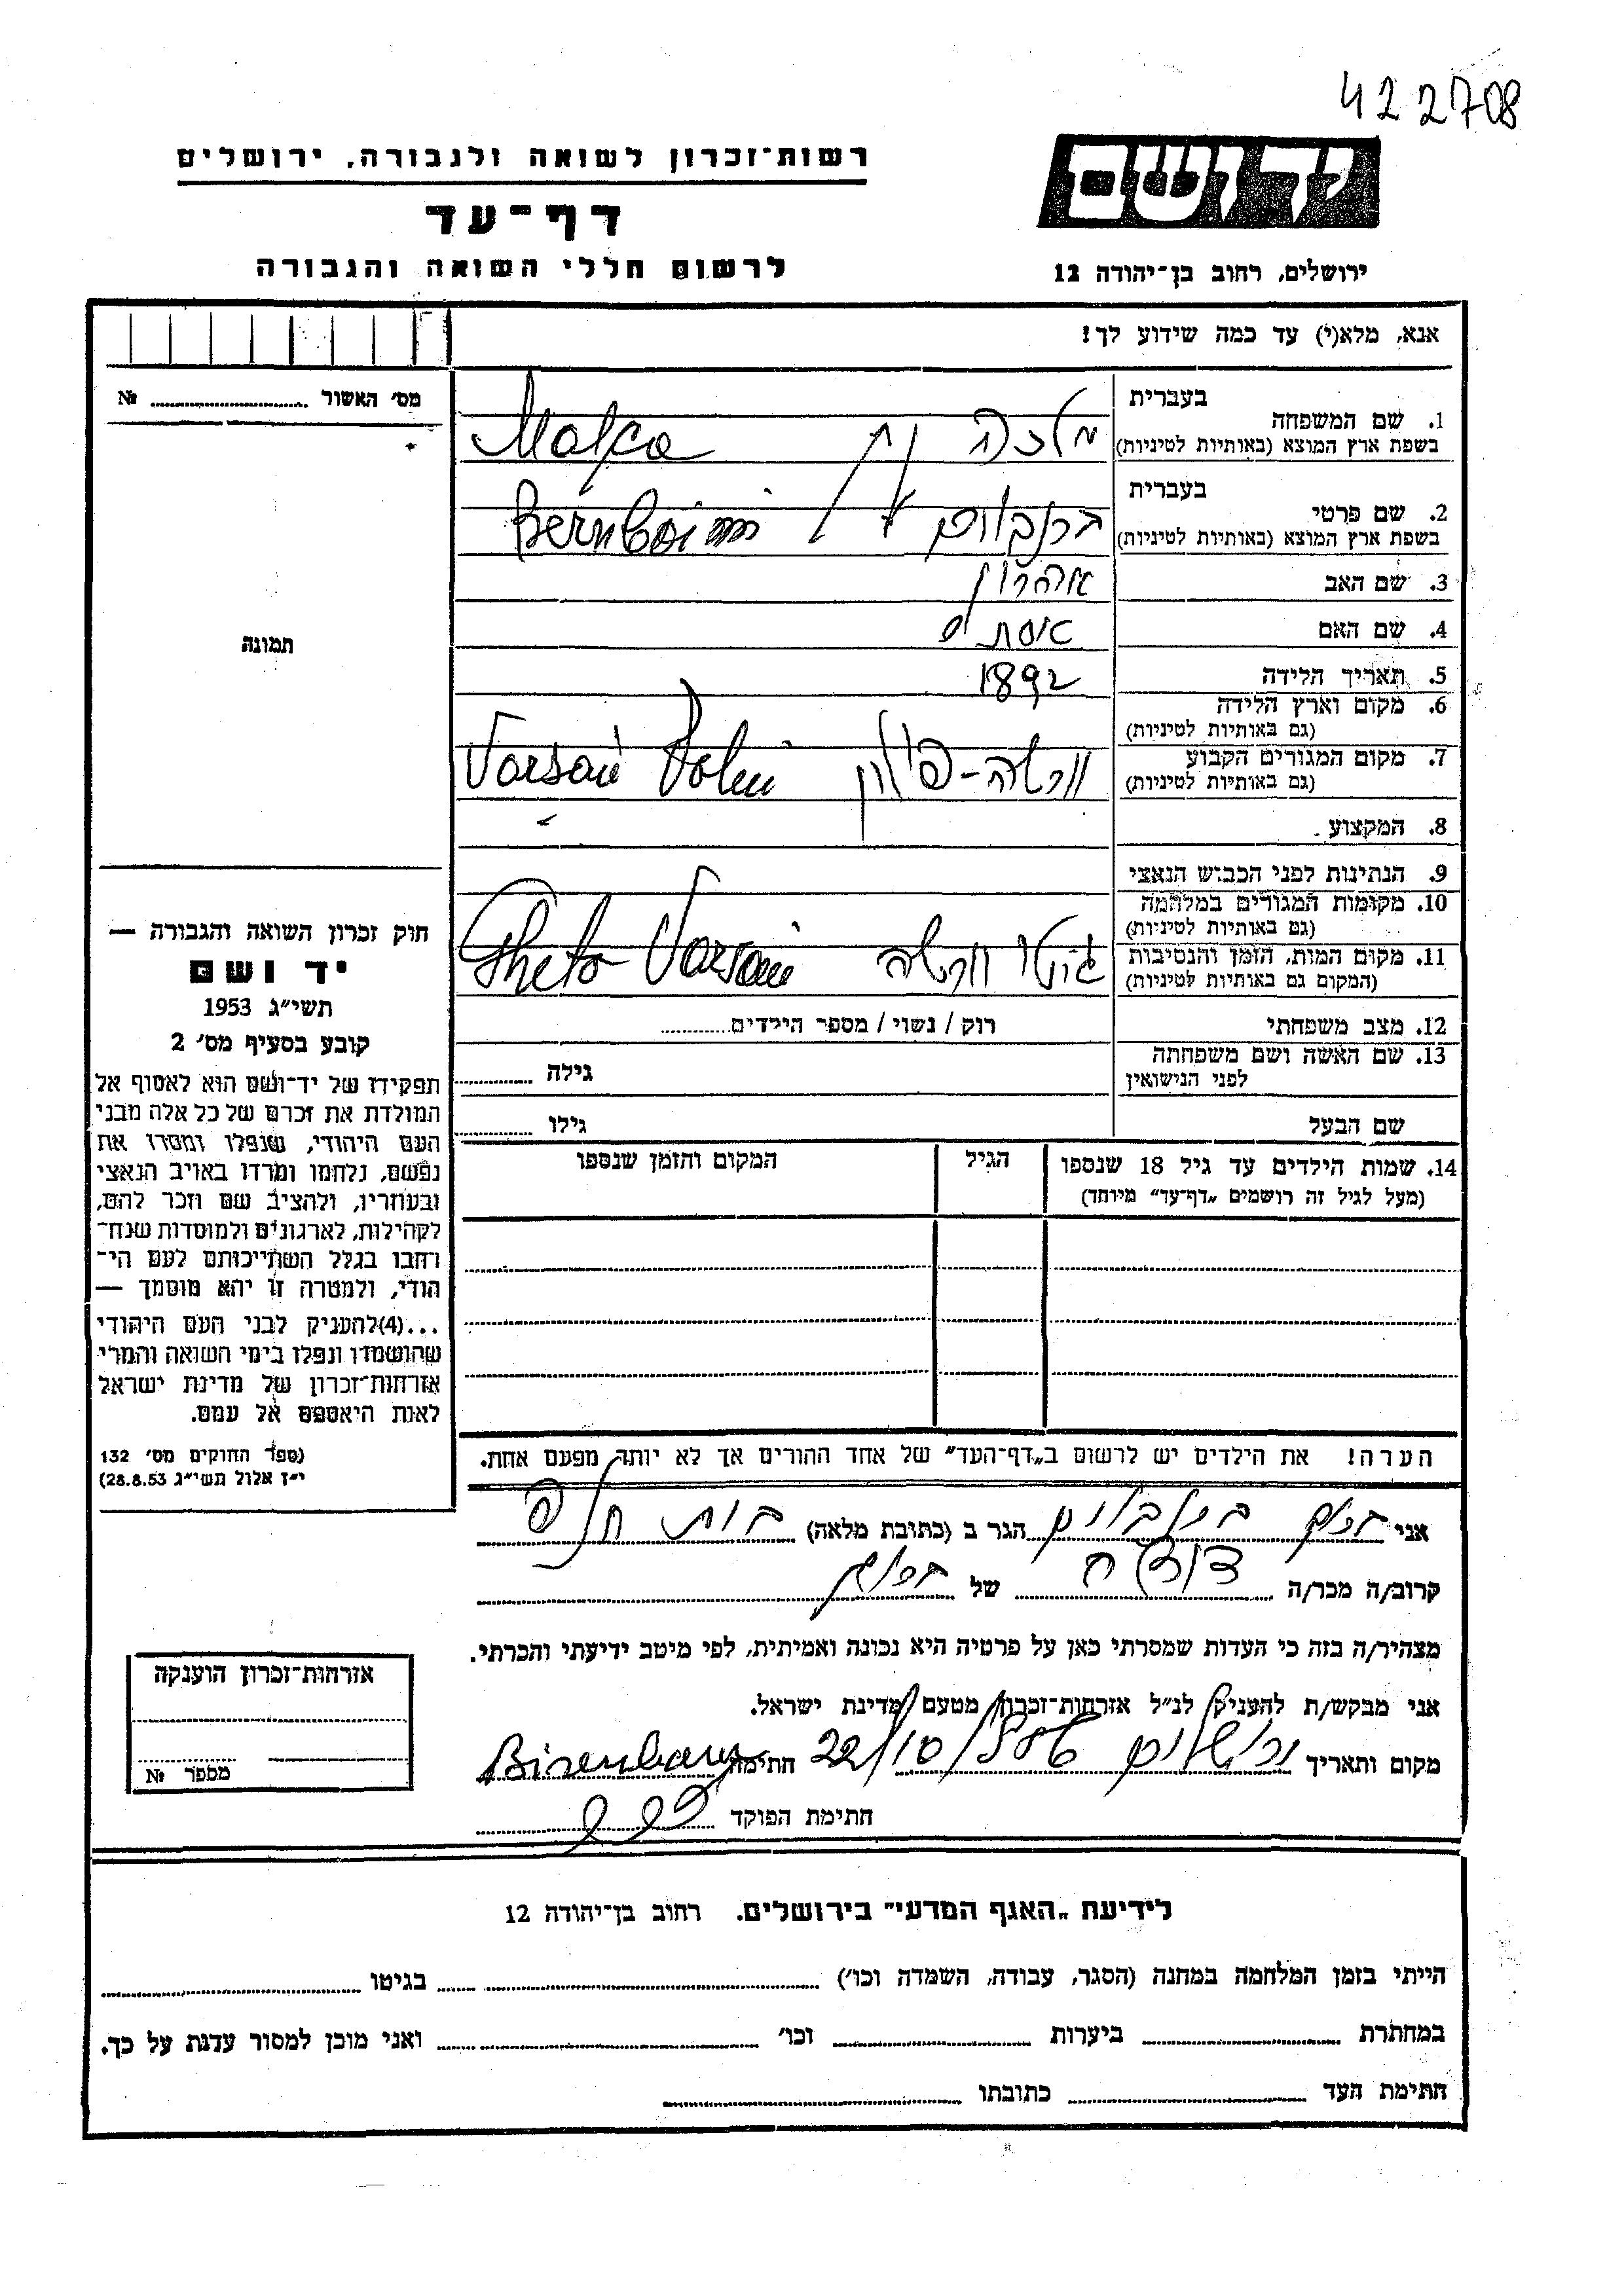 422708
יד ושם
רשות־זכרון לשואה ולגבורה, ירושלים
דף־עד
לרשום חללי השואה והגבורה
ירושלים, רחוב בן־יהודה 12
אנא, מלא(י) עד כמה שידוע לך!
מס׳ האשור № 
תמונה
חוק זכרון השואה והגבורה —
יד ושם
תשי״ג 1953
קובע בסעיף מס׳ 2
תפקידו של יד־ושם הוא לאסוף אל
המולדת את זכרם של כל אלה מבני
העם היהודי, שנפלו ומסרו את
נפשם, נלחמו ומרדו באויב הנאצי
ובעוזריו, ולהציב שם וזכר להם,
לקהילות, לארגונים ולמוסדות שנח־
רחבו בגלל השתייכותם לעם הי־
הודי, ולמטרה זו יהא מוסמך —
...(4)להעניק לבני העם היהודי
שהושמדו ונפלו בימי השואה והמרי
אזרחות־זכרון של מדינת ישראל
לאות היאספם אל עמם.
(ספר החוקים מס׳ 132
י״ז אלול תשי״ג 28.8.53)
בעברית
1. שם המשפחה
בשפת ארץ המוצא (באותיות לטיניות) מלכה Malca
בעברית
2. שם פרטי
בשפת ארץ המוצא (באותיות לטיניות) ברנבוים Bernboim
3. שם האב אהרון
4. שם האם אסתר
5. תאריך הלידה 1892
6. מקום וארץ הלידה
(גם באותיות לטיניות)
7. מקום המגורים הקבוע
(גם באותיות לטיניות) וורשה-פולין Varsau Polin
8. המקצוע
9. הנתינות לפני הכבוש הנאצי
10. מקומות המגורים במלחמה
(גם באותיות לטיניות)
11. מקום המות, הזמן והנסיבות
(המקום גם באותיות לטיניות) גיטו וורשה Gheto Varsau
12. מצב משפחתי רוק / נשוי / מספר הילדים
13. שם האשה ושם משפחתה
לפני הנישואין גילה
שם הבעל גילו
14. שמות הילדים עד גיל 18 שנספו הגיל המקום והזמן שנספו
(מעל לגיל זה רושמים „דף־עד״ מיוחד)
הערה! את הילדים יש לרשום ב„דף־העד״ של אחד ההורים אך לא יותר מפעם אחת.
אני בירנבוים הגר ב (כתובת מלאה) בות
קרוב/ה מכר/ה דודה של
מצהיר/ה בזה כי העדות שמסרתי כאן על פרטיה היא נכונה ואמיתית, לפי מיטב ידיעתי והכרתי.
אני מבקש/ת להעניק לנ״ל אזרחות־זכרון מטעם מדינת ישראל.
מקום ותאריך ירושלים 22/10/ חתימה Birenbaum
חתימת הפוקד
אזרחות־זכרון הוענקה
מספר №
לידיעת „האגף המדעי״ בירושלים, רחוב בן־יהודה 12
הייתי בזמן המלחמה במחנה (הסגר, עבודה, השמדה וכו׳) בגיטו
במחתרת ביערות וכו׳ ואני מוכן למסור עדות על כך.
חתימת העד כתובתו